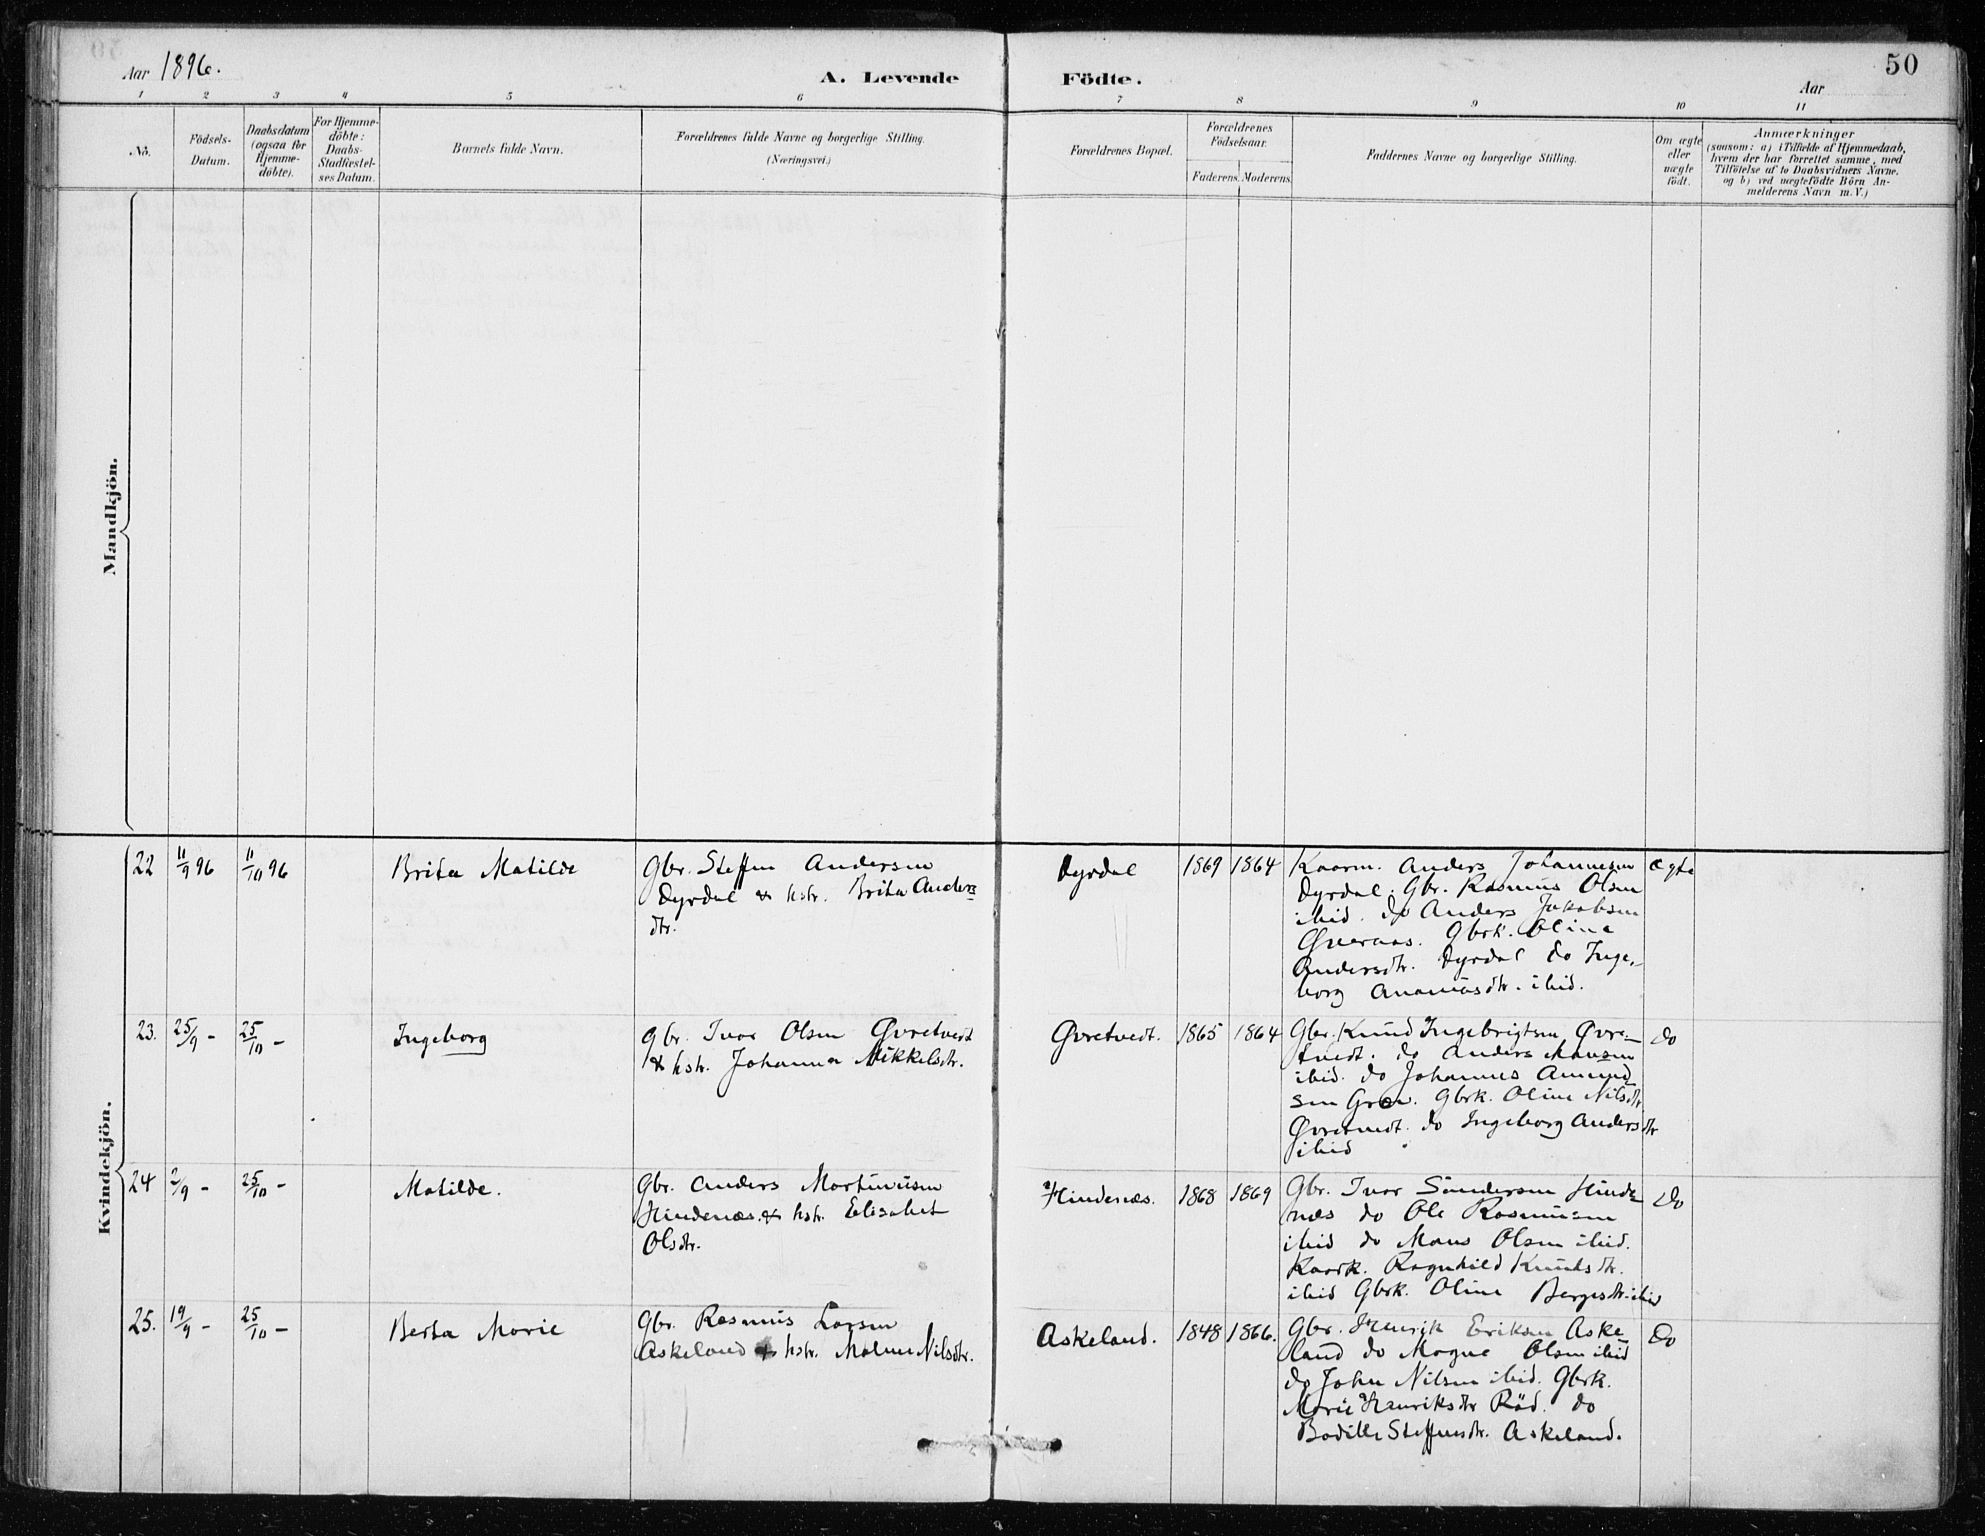 50
Aar 1896.
A. Levende Födte.
Aar
1 2 3 4 5 6 7 8 9 10 11
No.
Födsels-
Datum.
Daabsdatum
(ogsaa for
Hjemme-
döbte).
For Hjemme-
döbte:
Daabs-
Stadfæstel-
ses Datum.
Barnets fulde Navn.
Forældrenes fulde Navne og borgerlige Stilling.
(Næringsvei.)
Forældrenes Bopæl.
Forældrenes
Födselsaar.
Faderens. Moderens.
Faddernes Navne og borgerlige Stilling.
Om ægte
eller
uægte
födt.
Anmærkninger
(saasom: a) i Tilfælde af Hjemmedaab,
hvem der har forrettet samme, med
Tilföielse af to Daabsvidners Navne.
og b) ved uægtefödte Börn An-
melderens Navn m.V.)
Mandkjön.
Kvindekjön.
22
11/9 96
11/10 96
Brita Matilde
Gbr. Steffen Andersen
Dyrdal & hstr. Brita Anders
dtr.
Dyrdal
1869
1864
Kaarm. Anders Johannesen
Dyrdal. Gbr. Rasmus Olsen
ibid. do Anders Jakobsen
Gbrk. Oline
Andersdtr. Dyrdal do Inge-
borg Ananiasdtr. ibid.
Ægte
23.
25/9 -
25/10 -
Ingeborg
Gbr. Ivar Olsen Øvretvedt
& hstr. Johanna Mikkelsdtr.
Øvretvedt.
1865
1864
Gbr. Knud Ingebrigtsen Øvre-
tvedt. do Anders Monsen
ibid. do Johannes Amund-
sen Grov. Gbrk. Oline Nilsdtr.
Øvretvedt. do Ingeborg Andersdtr
ibid
do
24
2/9 -
25/10 -
Matilde.
Gbr. Anders Martinusen
Hindenæs. & hstr. Elisabet
Olsdtr.
Hindenæs.
1868
1869
Gbr. Ivar Sandersen Hinde-
næs do Ole Rasmusen
ibid do Mons Olsen ibid.
Kaark. Ragnhild Knudsdtr.
ibid Gbrk. Oline Bergesdtr. ibid
do
25.
19/9 -
25/10 -
Berta Marie
Gbr. Rasmus Larsen
Askeland & hstr. Malene Nilsdtr.
Askeland.
1848
1866.
Gbr. Henrik Eriksen Aske-
land do Mogne Olsen ibid
do John Nilsen ibid. Gbrk.
Marie Henriksdtr Röd. do
Bodille Steffensdtr. Askeland.
do